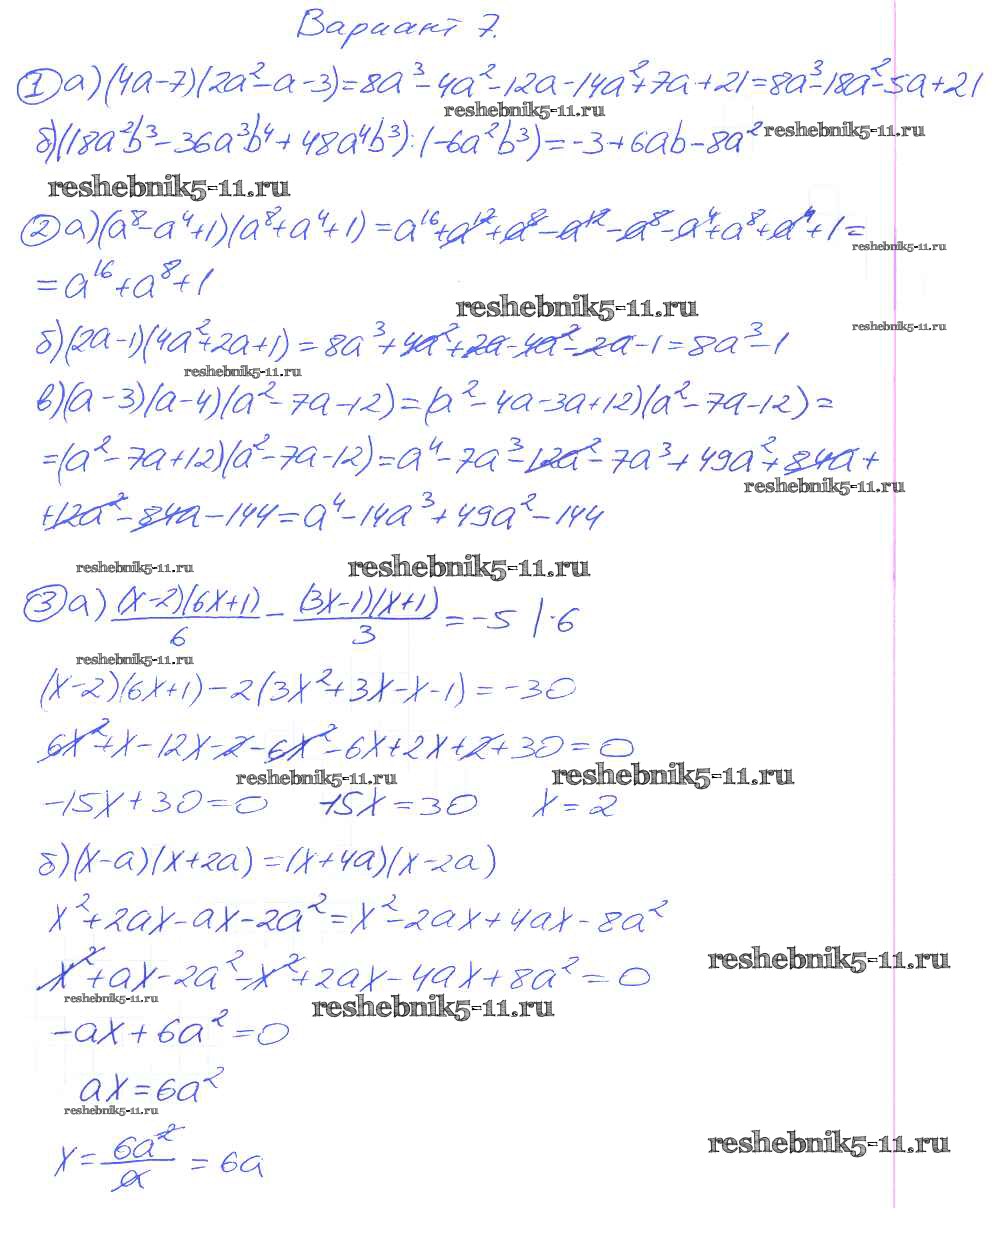 Вариант 7.
① а) (4a-7)(2a²-a-3)=8a³-4a²-12a-14a²+7a+21=8a³-18a²-5a+21
reshebnik5-11.ru
б) (18a²b³-36a³b⁴+48a⁴b³):(-6a²b³)=-3+6ab-8a²
reshebnik5-11.ru
reshebnik5-11.ru
② а) (a⁸-a⁴+1)(a⁸+a⁴+1)=a¹⁶+a¹²+a⁸-a¹²-a⁸-a⁴+a⁸+a⁴+1=
reshebnik5-11.ru
=a¹⁶+a⁸+1
reshebnik5-11.ru
reshebnik5-11.ru
б) (2a-1)(4a²+2a+1)=8a³+4a²+2a-4a²-2a-1=8a³-1
reshebnik5-11.ru
в) (a-3)(a-4)(a²-7a-12)=(a²-4a-3a+12)(a²-7a-12)=
=(a²-7a+12)(a²-7a-12)=a⁴-7a³-12a²-7a³+49a²+84a+
reshebnik5-11.ru
+12a²-84a-144=a⁴-14a³+49a²-144
reshebnik5-11.ru
reshebnik5-11.ru
③ а) (x-2)(6x+1)/6 - (3x-1)(x+1)/3 = -5 |·6
reshebnik5-11.ru
(x-2)(6x+1)-2(3x²+3x-x-1)=-30
6x²+x-12x-2-6x²-6x+2x+2+30=0
reshebnik5-11.ru
reshebnik5-11.ru
-15x+30=0 15x=30 x=2
б) (x-a)(x+2a)=(x+4a)(x-2a)
x²+2ax-ax-2a²=x²-2ax+4ax-8a²
reshebnik5-11.ru
x²+ax-2a²-x²+2ax-4ax+8a²=0
reshebnik5-11.ru
reshebnik5-11.ru
-ax+6a²=0
ax=6a²
reshebnik5-11.ru
reshebnik5-11.ru
x=6a²/a=6a